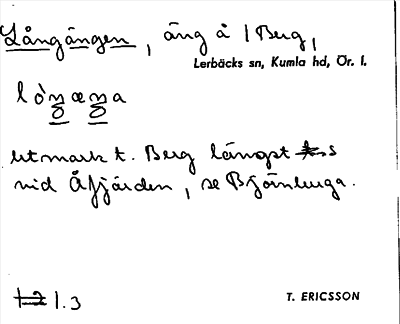 Långängen, äng å 1 Berg,
Lerbäcks sn, Kumla hd, Ör. l.
utmark t. Berg längst s
vid Åfjärden, se Björnluga.
1.3
T. ERICSSON